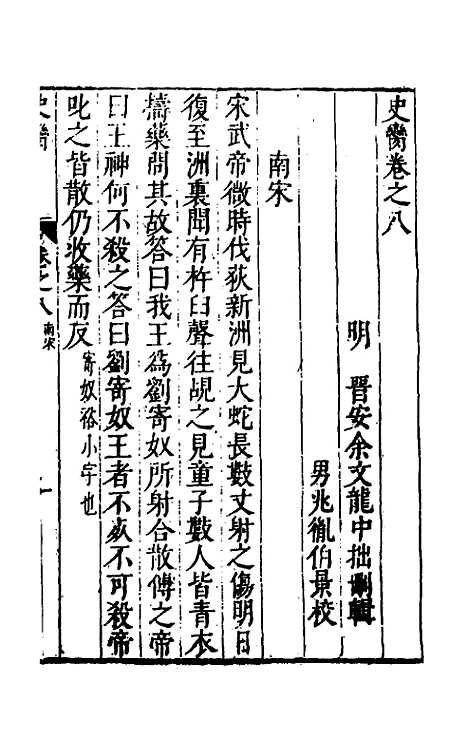 史臠卷之八
明　晋安余文龍中拙刪輯
男兆胤伯景校
南宋
宋武帝微時伐荻新洲見大蛇長數丈射之傷明日
復至洲裏聞有杵臼聲往覘之見童子數人皆青衣
擣藥問其故答曰我王爲劉寄奴所射合散傅之帝
曰王神何不殺之答曰劉寄奴王者不死不可殺帝
叱之皆散仍收藥而反寄奴裕小字也
史臠　卷之八　南宋　一